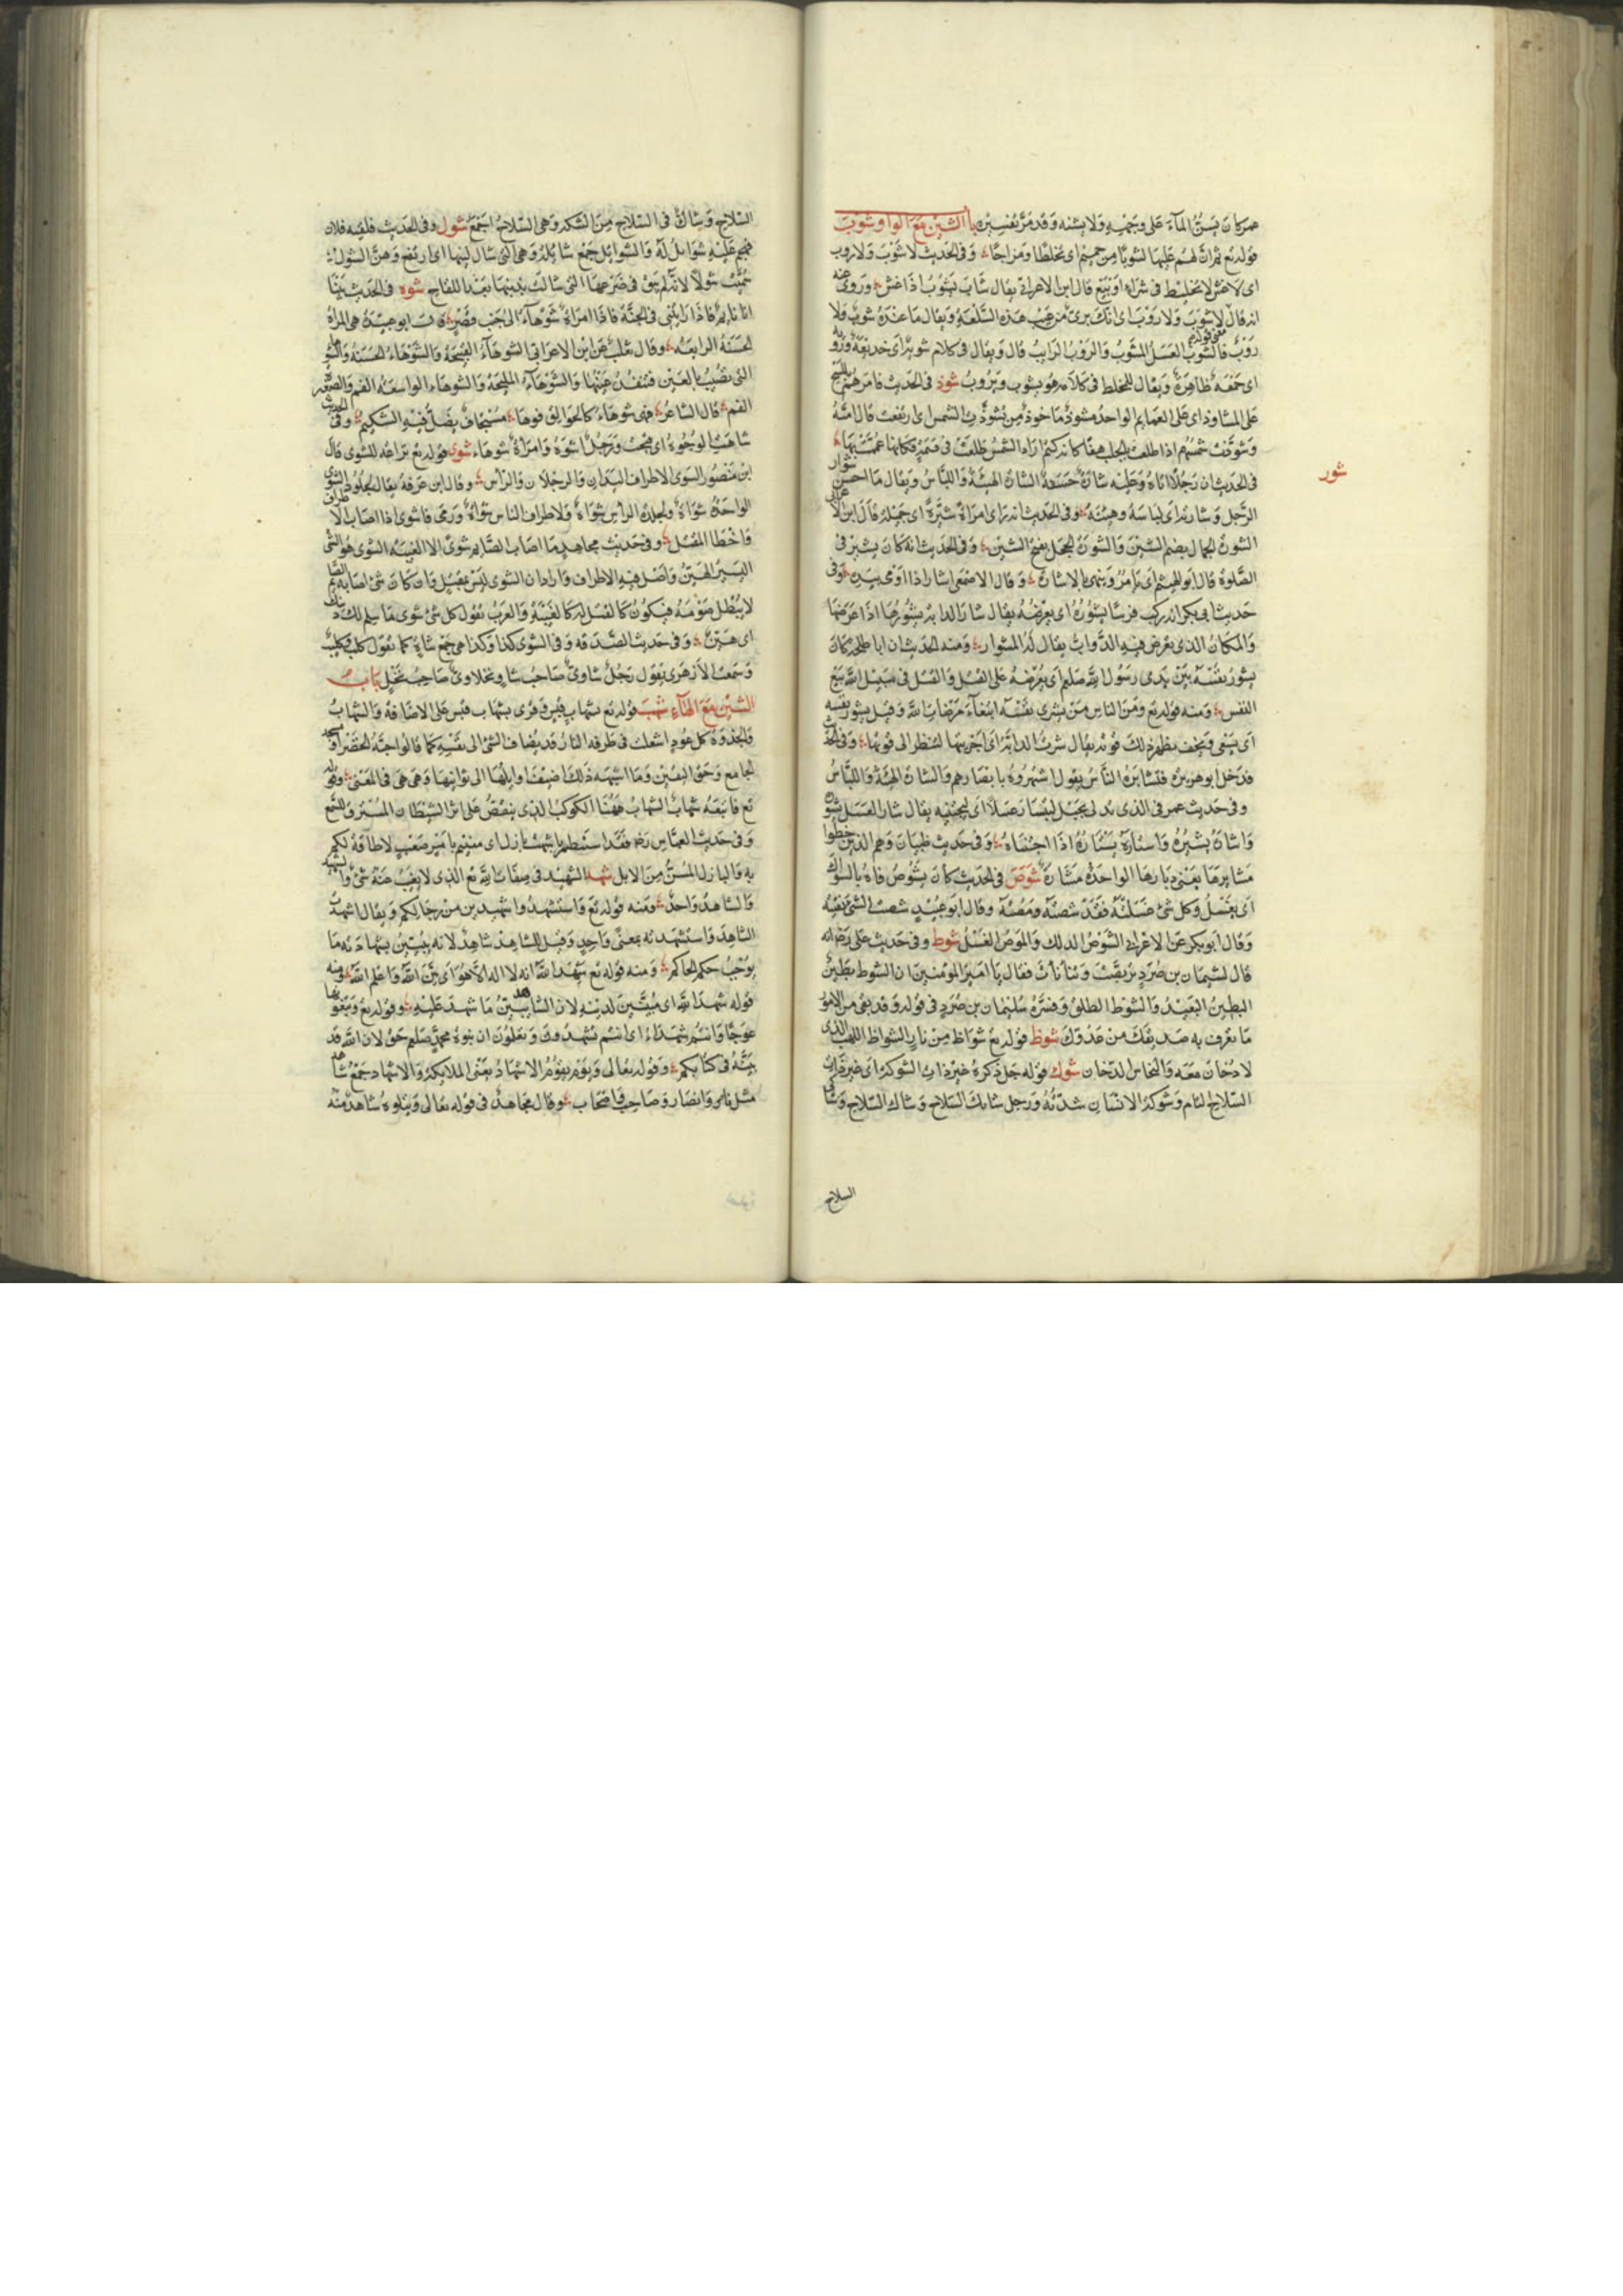 عمر كان يَسُنُّ المآءَ عَلى وجَهِهِ وَلا يشنه وَقد مَرَّ تفسِيْره بابُ الشين مَعَ الواو شَوَبَ
قوله تع ثم انَّ لهم عَليها لشوبًا من حَمِيْمٍ اى تخليطًا ومزاجًا وَفى الحَديث لا شَوْبَ وَلا روب
اى لاغش ولا تخليط فى شراءٍ اوْ بَيْعٍ قال ابن الاعرابى يقال شابَ يَشوْبُ اذا غش وَروى عنه
انه قال لا شوبَ وَلا روْبَ اى انك برىٌ من عَيْبِ هَذهِ السِّلعَةِ ويقال ما عندهُ شوبٌ ولا
رَوْبٌ فالشَّوْب العَسَلُ المشوبُ والرَوْبُ الرايبُ قال وَيقال فى كلام شوبةٌ اى خديعَةٌ وروبه
اى حَمْقَةٌ ظاهرَةٌ وَيقال للمخلط فى كلامه هُو يشوب وَيَرُوبُ شوذ فى الحَديث فامَرهُمْ ان يمسحوا
على المشاوذ اى على العمايم الواحدُ مشوذٌ مَا خوذٌ من شوَّذَتِ الشمس اى ارتفعت قال اميَّةُ
وَشوَّذَت شمسُهم اذا طلعت بالجلب هِفًّا كانه كتمُ اراد الشمسُ طلعَت فى قتمَةٍ فكانها عُمِّمَتْ بهَا
شور
فى الحَديث ان رَجُلاً اتاهُ وَعَليْه شارَةٌ حَسَنةٌ الشارَة الهيئةُ وَاللباسُ ويقال مَا احسَن شوار
الرَّجل وَشارَتهُ اى لباسَهُ وهيئتهُ وفى الحَديث انه راى امرَاةً شَيِّرَةً اى جَمِيْلة قالَ ابن الاعرابى
الشورَةُ الجمال بضم الشِيْنِ وَالشَورَةُ الخجَل بفتح الشين وَفى الحَديث انهُ كانَ يشيرُ فى
الصَّلوةِ قال ابو الهيثم اى يَامرُ وَينهى بالاشارَة وَقال الاصْمَعى اشار اذا اوْمى بيَدهِ وَفى
حَديث ابى بكر انه ركب فرسًا يشورُهُ اى يَعْرضُهُ يقال شارَ الدابة يشُورُها اذا عَرَضَها
وَالمكانُ الذى يعْرَض فيهِ الدَّوابّ يقال لهُ المشوار وَمنه الحديث ان ابا طلحة كانَ
يشورُ نفسَهُ بَيْن يَدى رسُول الله صَلعم اى يَعْرضُهُ على القتل وَالقتل فى سَبيْل الله بَيْعُ
النفس وَمنه قوله تع وَمنَ الناسِ مَن يَشرى نفسَه ابتغآءَ مَرْضاتِ الله وَقيل يشور نفسَه
اى يَسعى وَيخف يظهر بذلك قوته يقال شرت الدابَّة اى اجْرَيتها لتنظر الى قوتها وَفى الحَديث
فدَخل ابو هريرة فتشايَرهُ النّاسُ يقول اشتهرُوهُ بابصارهم وَالشارَة الهيئة وَاللباسُ
وفى حَديث عمر فى الذى تدلى بحَبْل ليَشتارَ عَسَلاً اى ليجتنيه يقال شارَ العَسَل يشوره
وَاشارَهُ يشيرُه وَاشتارَهُ يشتارُه اذا اجْتنَاهُ وَفى حَديث ظبيان وَهم الذين خطّوا
مَشايرَها يعنى ديارَها الواحدَةُ مَشارَةٌ شَوَصَ فى الحَديث كانَ يَشُوصُ فاهُ بالسِّواك
اى يَغسلُ وَكلّ شئٍ غسَلتهُ فقد شصتَهُ وَمُصْتَه وَقال ابو عُبيْد شصت الشئ نقيته
وَقال ابو بكر عن الاعرابى الشَّوصُ الدلك وَالمَوصُ الغَسْلُ شوط وفى حَديث عَلى رَض انه
قال لسُليْمان بن صُرَدٍ تربَّصْتَ وَتنأنأتَ فقال يا امير المُؤمنيْن ان الشوط بَطِيْنٌ
البطينُ البَعيْدُ وَالشوطُ الطلقُ وَفسَّرهُ سُليمان بن صُرَد فى قوله وَقد بقى من الامور
مَا تعرف به صَديقكَ من عَدُوِّك شوظ قوله تع شوَاظ مِنْ نارٍ الشواظ اللهب الذى
لا دُخانَ معَه وَالنحاسُ الدّخان شوك قوله جَل ذكرهُ غيرَ ذاتِ الشوكةِ اى غيرَ ذات
السّلاح التام وَشوكةُ الانسَان شدّتُهُ وَرجل شائك السّلاح وَشاكُ السّلاحِ وَشاكى
السلاح
السّلاحِ وَشاكٌّ فى السّلاحِ مِنَ الشكة وَهى السّلاحُ اجمَعُ شول وفى الحَديث
فهجم عَليْهِ شوَائلُ لهُ وَالشوائل جَمْع شائلة وهى التى شال لبنها اى ارتفع وَهنّ الشول
سُمِّيَتْ شولاً لانه لم يَبق فى ضَرْعهَا شوه فى الحَديث بَيْنَا
انا نايم فاذا رايتنى فى الجنّة فاذا امرَاةٌ شوْهاءُ الى جَنْب قصْرٍ قال ابو عبيْدَة هى المرأة
الحسَنةُ الرايعَة وقال ثعلب عن ابن الاعرابى الشوهآءُ القبيْحَةُ وَالشوْهاءُ الحسَنة
التى تصيْبُ بالعَيْن فتنفذُ عينهَا وَالشوْهآءُ المليْحَةُ وَالشوهاء الواسعَة الفم والصغيرة
الفم قال الشاعرُ فهى شوهاءُ كالجوَالق فوها مُستجافٌ يضلُّ فيهِ الشكيمُ وفى الحديث
شاهَتِ الوُجُوهُ اى قبحت وَرَجُلٌ اشوَهُ وَامرَأةٌ شوهَاءُ شوى قوله تع نزاعة للشوى قال
ابن مَنصُور الشوى الاطراف اليَدان والرجلان وَالراْس وقال ابن عَرفة يقال لجلود الشوى
الواحدَةُ شوَاةٌ وَلجلدَة الرأسِ شوَاةٌ وَلاطراف الناس شوَاةٌ وَرَمى فاشوى اذا اصَابَ الاطراف
وَاخْطا المقتلَ وفى حَديْث مجاهدٍ مَا اصابَ الصّايم شوىً الا الغيبة الشوى هُو الشئ
اليَسيْر الهيّنُ وَاصْل فيهِ الاطراف وَارادَ ان الشوى ليْسَ بمقتل وَان كلّ شئ اصابَه الصّايم
لا يُبْطل صَوْمَهُ فيَكونُ كالقتل له كالغيْبَةِ وَالعربُ تقول كل شئ شوى مَا سلم لك دينك
اى هَيّنٌ وفى حَديث الصّدَقه وَفى الشوى كذا وَكذا هى جَمْعُ شاةٍ كمَا تقول كلبٌ وكليبٌ
وَسَمعت الازهَرى يَقول رَجُلٌ شاوىٌّ صَاحبُ شاءٍ صَاحِبُ نخل بَابُ
الشيْن مَعَ الهآءِ شهَبَ قوله تع بشهابٍ قبَسٍ وَقرى بشهاب قبسٍ على الاضَافة وَالشهابُ
وَالجذوَة كل عُودٍ اشعلت فى طرفه النارُ وَقد يُضاف الشئ الى نفسِهِ كما قالوا حبَّة الخضراءِ ومسجد
الجامع وَحَقّ اليقيْن وَهىَ هى فى المعْنى وقوله
تع فاتبَعَهُ شهابٌ الشهابُ هٰهُنَا الكوكبُ الذى ينقضُّ على اثر الشيْطان المُسْترق للسّمع
وَفى حَديث العبَّاس رَض لا طاقة لكم
به وَالبازل المُسنُّ مِنَ الابل شهد الشهيْد فى صفات الله تع الذى لا يَغيْبُ عَنهُ شئ وَالشهيد
وَالشاهدُ وَاحدٌ ومنه قوله تع وَاستشهدُوا شهيدين من رجَالكم وَيقال اشهدتُ
الشاهدَ وَاستشهدته بمعنًى وَاحدٍ وَقيل للشاهد شاهدٌ لانه يبيّنُ بشهادته مَا
يوجبُ حكم الحاكم وَمنه قوله تع شهدَ اللهُ انه لا اله الا هُو اى بيَّنَ اللهُ وَاعلم الله ومنه
قوله شهدآءَ لله اى مُبَيّنينَ لدينهِ لان الشاهد يُبيّنُ مَا شهدَ عَليْهِ وقوله تع وتبغونها
عوجًا وَانتم شهَدَاءُ اى انتم تشهدُونَ وَتعلمُونَ ان نبوة محمدٍ صَلعم حَقٌ لان الله قد
بيَّنهُ فى كتابكم وَقوله تعالى وَيَوْم يقوْمُ الاشهادُ يَعْنى الملائكة وَالاشهاد جَمْعُ شاهد
مثل ناصرٍ وَانصَارٍ وَصَاحبٍ وَاصْحَاب وقال مجاهدٌ فى قوله تعالى وَيتلوهُ شاهدٌ منه